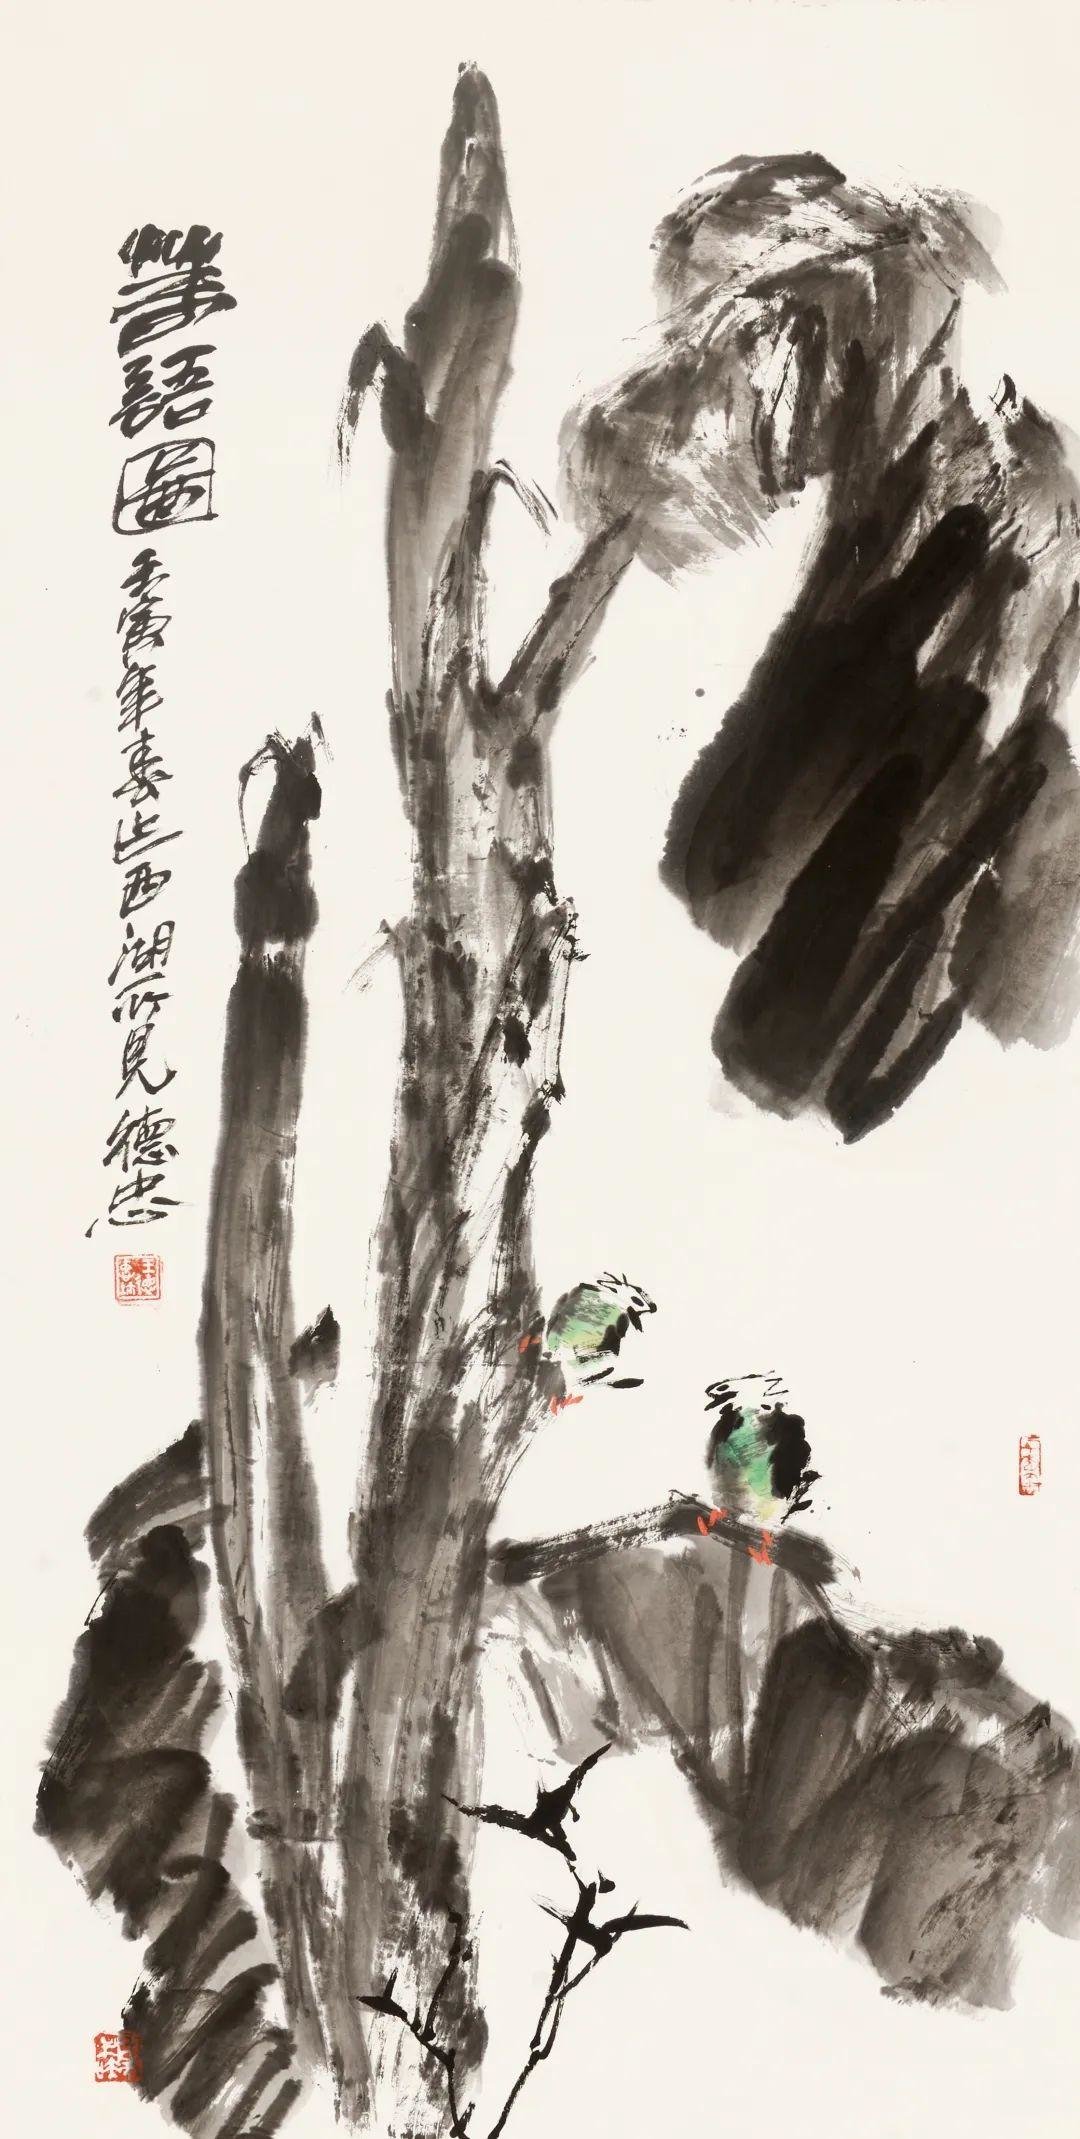 語圖壬寅年春西湖所見德忠